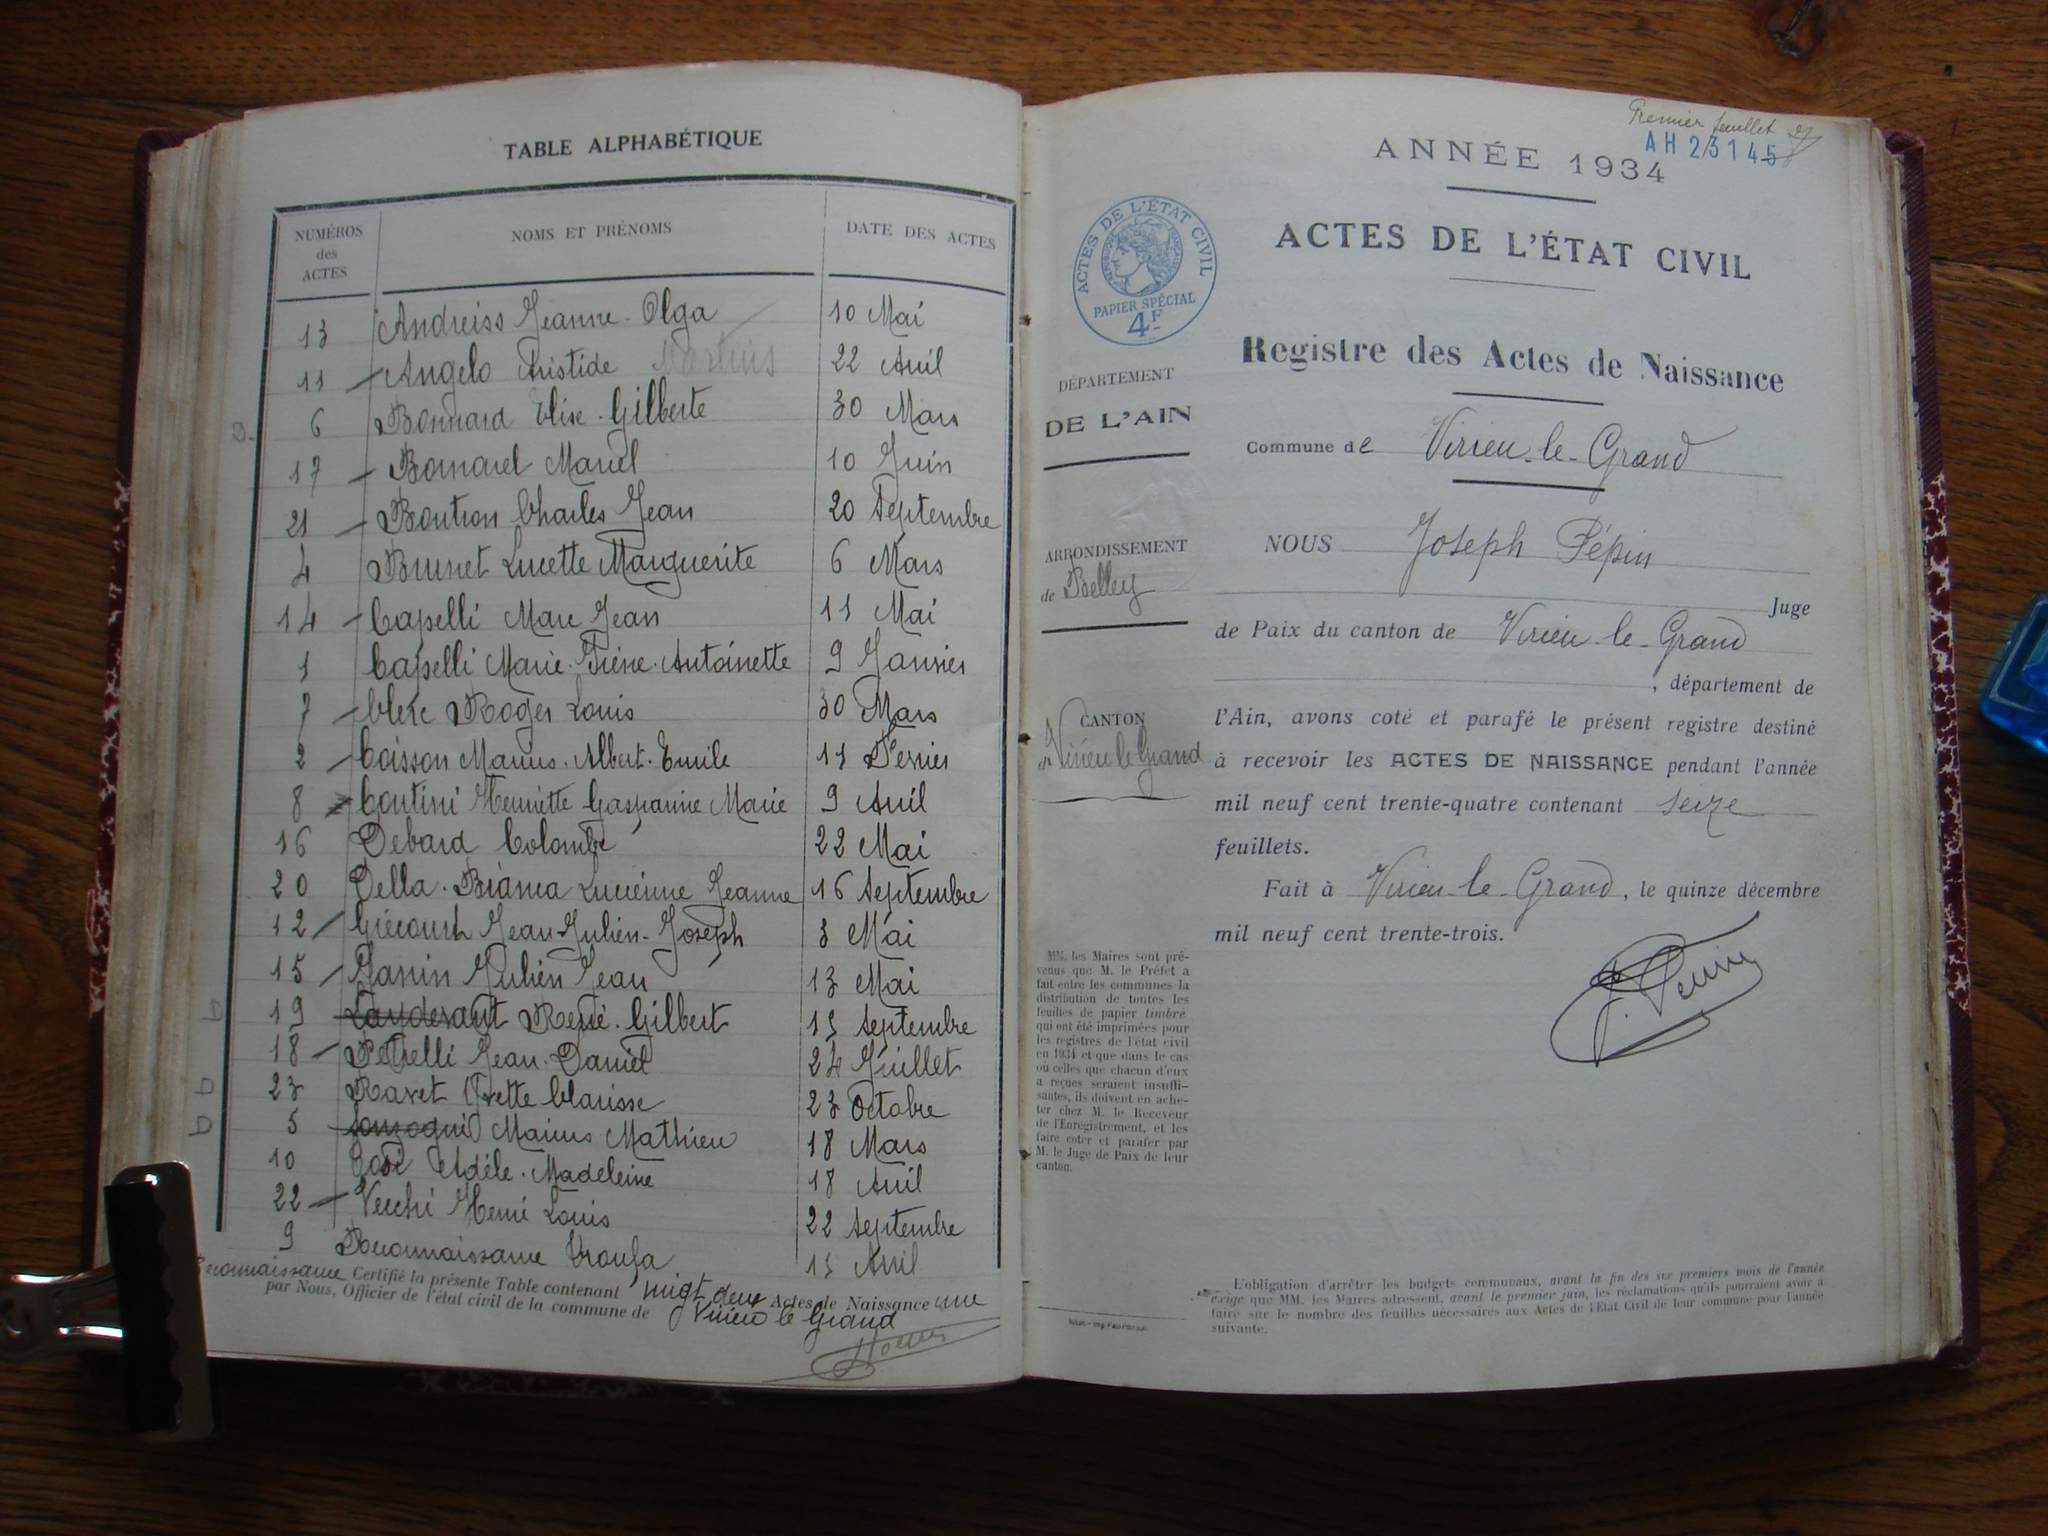 TABLE ALPHABÉTIQUE
NUMÉROS des ACTES NOMS ET PRÉNOMS DATE DES ACTES
13 Andreiss Jeanne-Olga 10 Mai
11 Angelo Aristide 22 Avril
6 Bonnard Elise-Gilberte 30 Mars
17 Bornarel Marcel 10 Juin
21 Boutron Charles Jean 20 Septembre
4 Brunet Lucette Marguerite 6 Mars
14 Capelli Marc Jean 11 Mai
1 Capelli Marie-Irène-Antoinette 9 Janvier
7 Clerc Roger Louis 30 Mars
2 Coisson Marius-Albert-Emile 11 Février
8 Contini Henriette Gasparine Marie 9 Avril
16 Debard Colombe 22 Mai
20 Della-Bianca Lucienne Jeanne 16 Septembre
12 Giecourt Jean-Julien-Joseph 3 Mai
15 Janin Julien Jean 13 Mai
19 René-Gilbert 15 Septembre
18 Petrelli Jean-Daniel 24 Juillet
23 Ravet Yvette Clarisse 23 Octobre
5 Marius Mathieu 18 Mars
10 Adèle-Madeleine 18 Avril
22 Vecchi Henri Louis 22 Septembre
9 Reconnaissance 15 Avril
Certifié la présente Table contenant vingt deux Actes de Naissance une
reconnaissance
par Nous, Officier de l'état civil de la commune de Virieu le Grand
Premier feuillet
AH 23145
ANNÉE 1934
ACTES DE L'ÉTAT CIVIL
Registre des Actes de Naissance
ACTES DE L'ÉTAT CIVIL
RÉPUBLIQUE FRANÇAISE
PAPIER SPÉCIAL
4F
DÉPARTEMENT
DE L'AIN
ARRONDISSEMENT
de Belley
CANTON
de Virieu le Grand
MM. les Maires sont pré-
venus que M. le Préfet a
fait entre les communes la
distribution de toutes les
feuilles de papier timbré
qui ont été imprimées pour
les registres de l'état civil
en 1934 et que dans le cas
où celles que chacun d'eux
a reçues seraient insuffi-
santes, ils doivent en ache-
ter chez M. le Receveur
de l'Enregistrement, et les
faire coter et parafer par
M. le Juge de Paix de leur
canton.
Commune de Virieu-le-Grand
NOUS Joseph Pépin
Juge
de Paix du canton de Virieu-le-Grand
, département de
l'Ain, avons coté et parafé le présent registre destiné
à recevoir les ACTES DE NAISSANCE pendant l'année
mil neuf cent trente-quatre contenant seize
feuillets.
Fait à Virieu-le-Grand, le quinze décembre
mil neuf cent trente-trois.
J. Pépin
L'obligation d'arrêter les budgets communaux, avant la fin des six premiers mois de l'année
exige que MM. les Maires adressent, avant le premier juin, les réclamations qu'ils pourraient avoir à
faire sur le nombre des feuilles nécessaires aux Actes de l'État Civil de leur commune pour l'année
suivante.